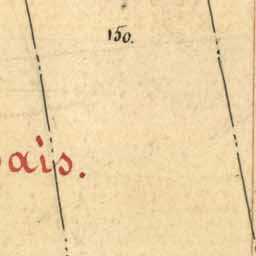 150.
ais.